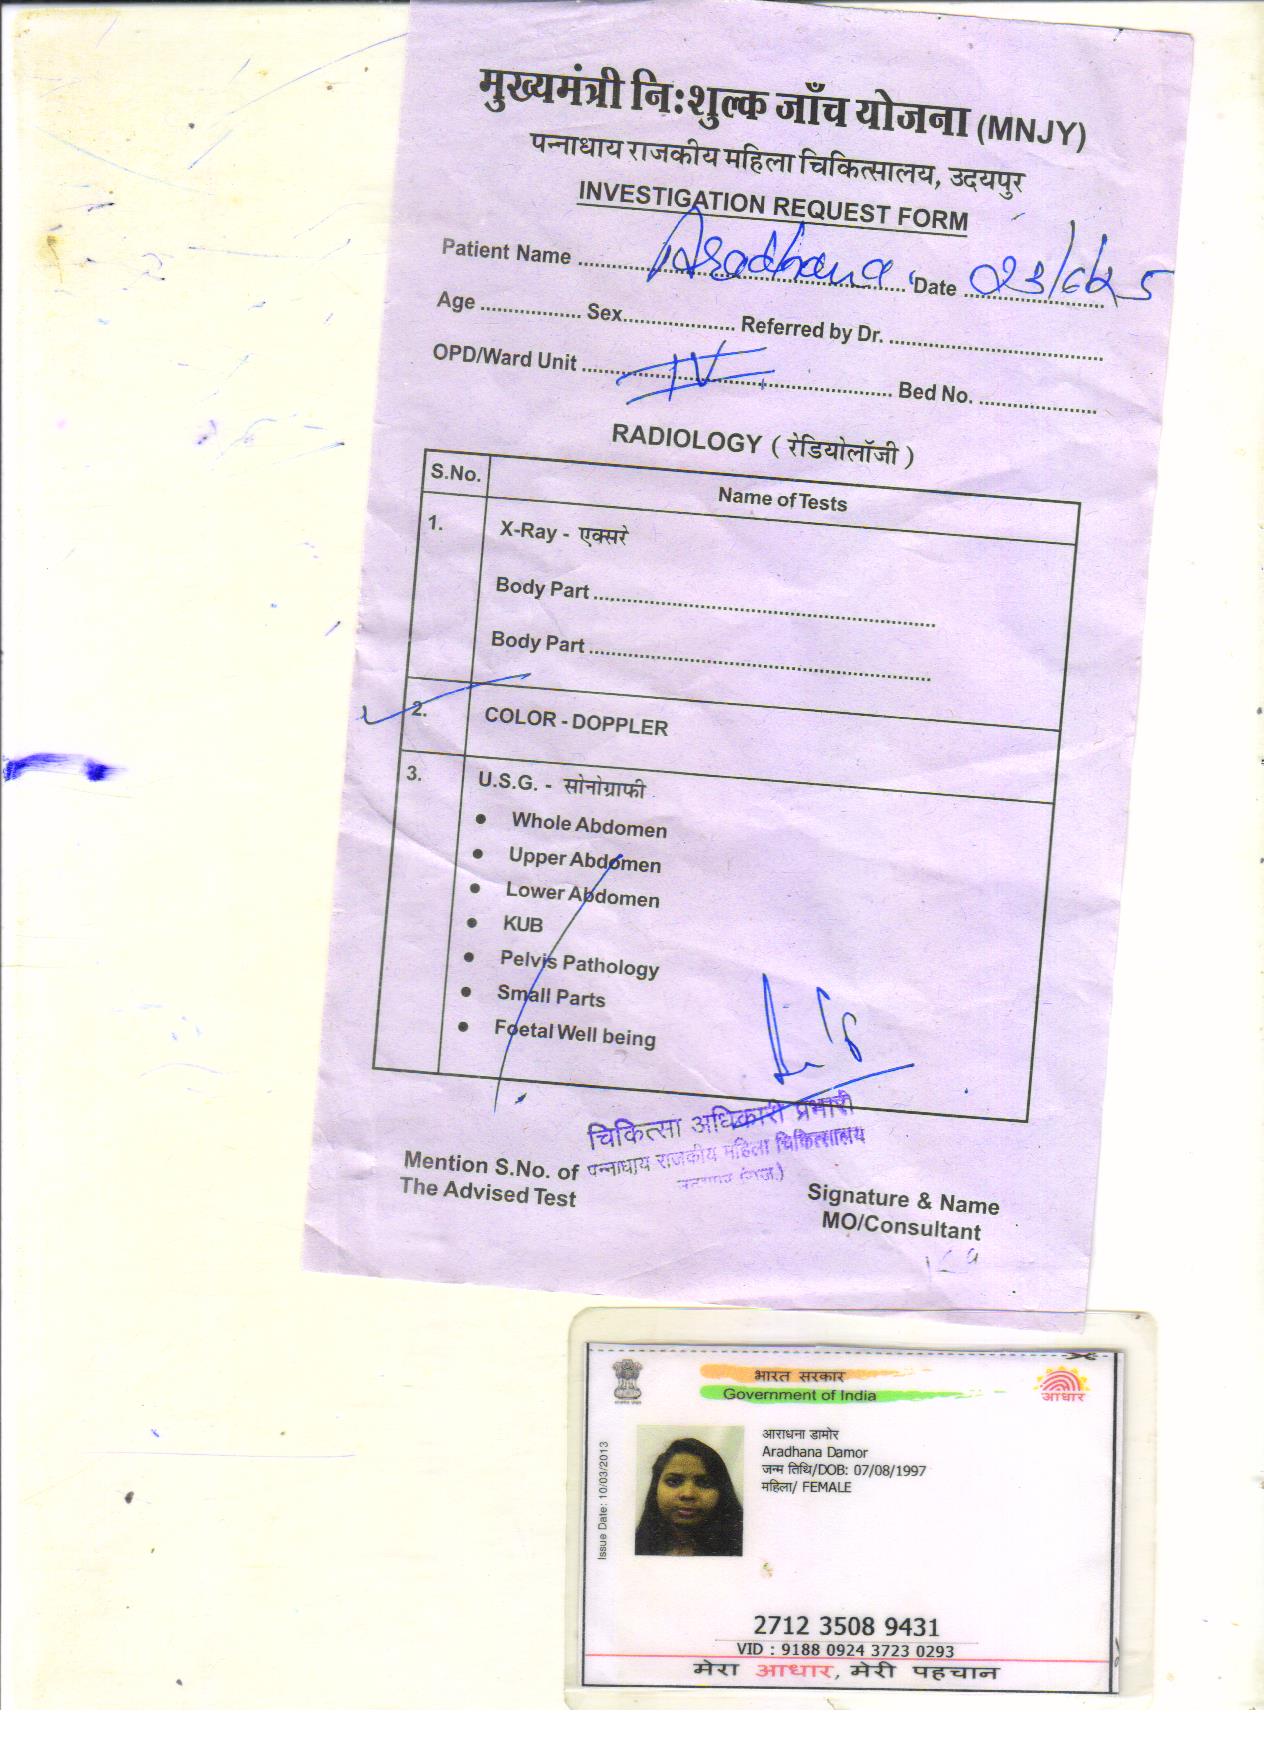 मुख्यमंत्री नि:शुल्क जाँच योजना (MNJY)
पन्नाधाय राजकीय महिला चिकित्सालय, उदयपुर
INVESTIGATION REQUEST FORM
Patient Name Aradhana Date 23/6/25
Age Sex Referred by Dr.
OPD/Ward Unit IV Bed No.
RADIOLOGY ( रेडियोलॉजी )
S.No. Name of Tests
1. X-Ray - एक्सरे
Body Part
Body Part
2. COLOR - DOPPLER
3. U.S.G. - सोनोग्राफी
• Whole Abdomen
• Upper Abdomen
• Lower Abdomen
• KUB
• Pelvis Pathology
• Small Parts
• Foetal Well being
चिकित्सा अधिकारी प्रभारी
पन्नाधाय राजकीय महिला चिकित्सालय
(राज.)
Mention S.No. of
The Advised Test
Signature & Name
MO/Consultant
भारत सरकार
Government of India
आधार
Issue Date: 10/03/2013
आराधना डामोर
Aradhana Damor
जन्म तिथि/DOB: 07/08/1997
महिला/ FEMALE
2712 3508 9431
VID : 9188 0924 3723 0293
मेरा आधार, मेरी पहचान